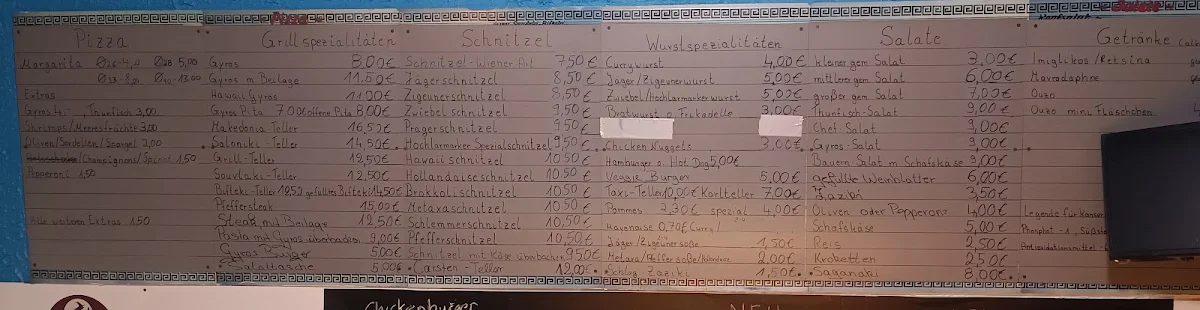 Pizza
Margarita Ø26-4,- Ø28 5,00
Extras
Thunfisch 3,00
Shrimps/Meeresfrüchte 3,00
Oliven/Sardellen/Spargel 2,00
/Champignons/Spinat 1,50
Pepperoni 1,50
Alle weiteren Extras 1.50
Grillspezialitäten
Gyros 8,00€
Gyros m Beilage 11.50€
Hawaii Gyros 11.00€
Gyros Pita 7.00€ offene Pita 8,00€
Makedonia Teller 16,50€
Saloniki-Teller 14,50€
Grill-Teller 12,50€
Souvlaki-Teller 12,50€
Bifteki-Teller 12,50 gefülltes Bifteki 14,50€
Pfeffersteak 15,00€
Steak mit Beilage 12,50€
Pasta mit Gyros überbacken 9,00€
Gyros Burger 5,00€
Salattasche 5,00€
Schnitzel
Schnitzel-Wiener Art 7,50€
Jägerschnitzel 8,50€
Zigeunerschnitzel 8,50€
Zwiebelschnitzel 9,50€
Pragerschnitzel 9,50€
Hochlarmarker Spezialschnitzel 9,50€
Hawaiischnitzel 10,50€
Hollandaiseschnitzel 10,50€
Brokkolischnitzel 10,50€
Metaxaschnitzel 10,50€
Schlemmerschnitzel 10,50€
Pfefferschnitzel 10,50€
Schnitzel mit Käse überbacken 9,50€
Carsten-Teller 12,00€
Wurstspezialitäten
Currywurst 4,00€
Jäger/Zigeunerwurst 5,00€
Zwiebel/Hochlarmarkerwurst 5,00€
Bratwurst o. Frikadelle 3,00€
Chicken Nuggets 3,00€
Hamburger o. Hot Dog 5,00€
Veggie Burger 5,00€
Taxi-Teller 10,00€ Karlteller 7,00€
Pommes 3,30€ spezial 4,00€
Mayonaise 0,70€ Curry/
Jäger/Zigeunersoße 1,50€
Metaxa/Pfeffersoße/ 2,00€
Schlag Zaziki 1,50€
Salate
kleiner gem Salat 3,00€
mittlerer gem Salat 6,00€
großer gem Salat 7,00€
Thunfisch-Salat 9,00€
Chef-Salat 9,00€
Gyros-Salat 9,00€
Bauern-Salat m Schafskäse 9,00€
gefüllte Weinblätter 6,00€
Zaziki 3,50€
Oliven oder Pepperoni 4,00€
Schafskäse 5,00€
Reis 2,50€
Kroketten 2,50€
Saganaki 8,00€
Getränke
Imiglikos/Retsina
Mavradaphne
Ouzo
Ouzo mini Fläschchen
Legende für
Phosphat -1, Süßsto
Antioxidationsmittel
Chickenburger
NEU